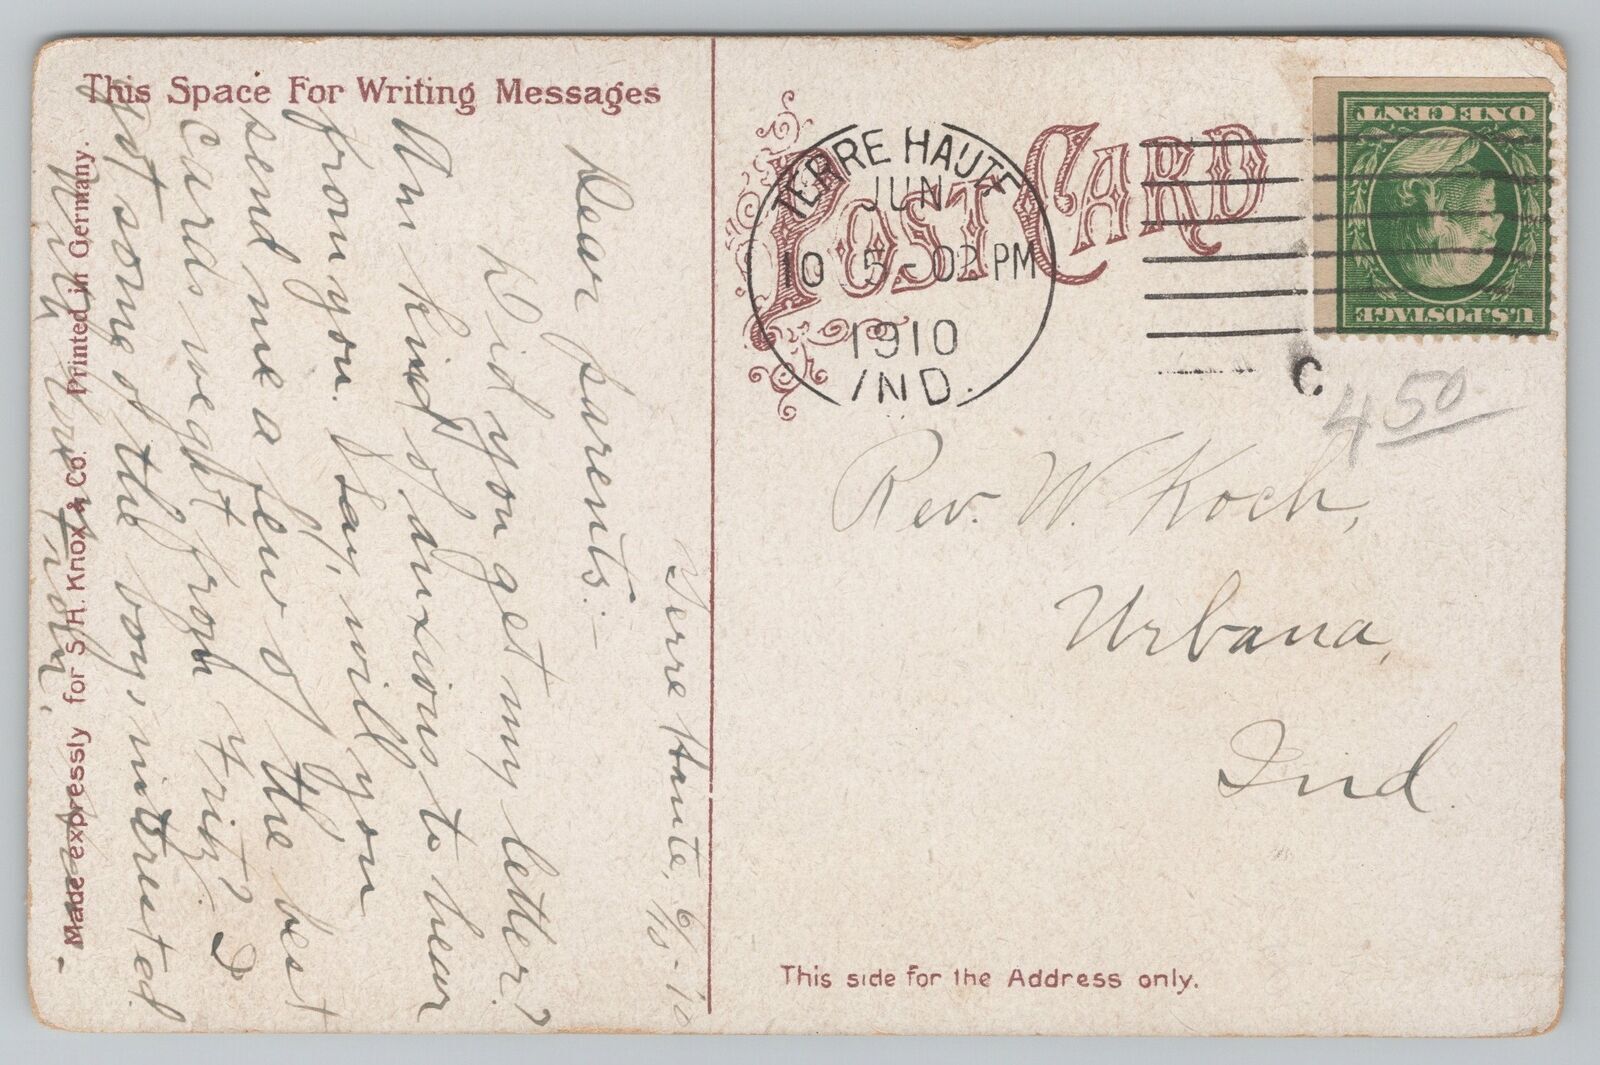 This Space For Writing Messages
POST CARD
TERRE HAUTE
JUN
10 5-02 PM
1910
IND.
ONE CENT
U.S. POSTAGE
C
4 50
Terre Haute, 6/10-'10
Dear parents:-
Did you get my letter?
Am kind of anxious to hear
from you. Say, will you
send me a few of the best
cards we got from Fritz? I
got some of the boys intrested
Rev. W. Koch,
Urbana,
Ind.
Made expressly for S. H. Knox & Co. Printed in Germany.
This side for the Address only.